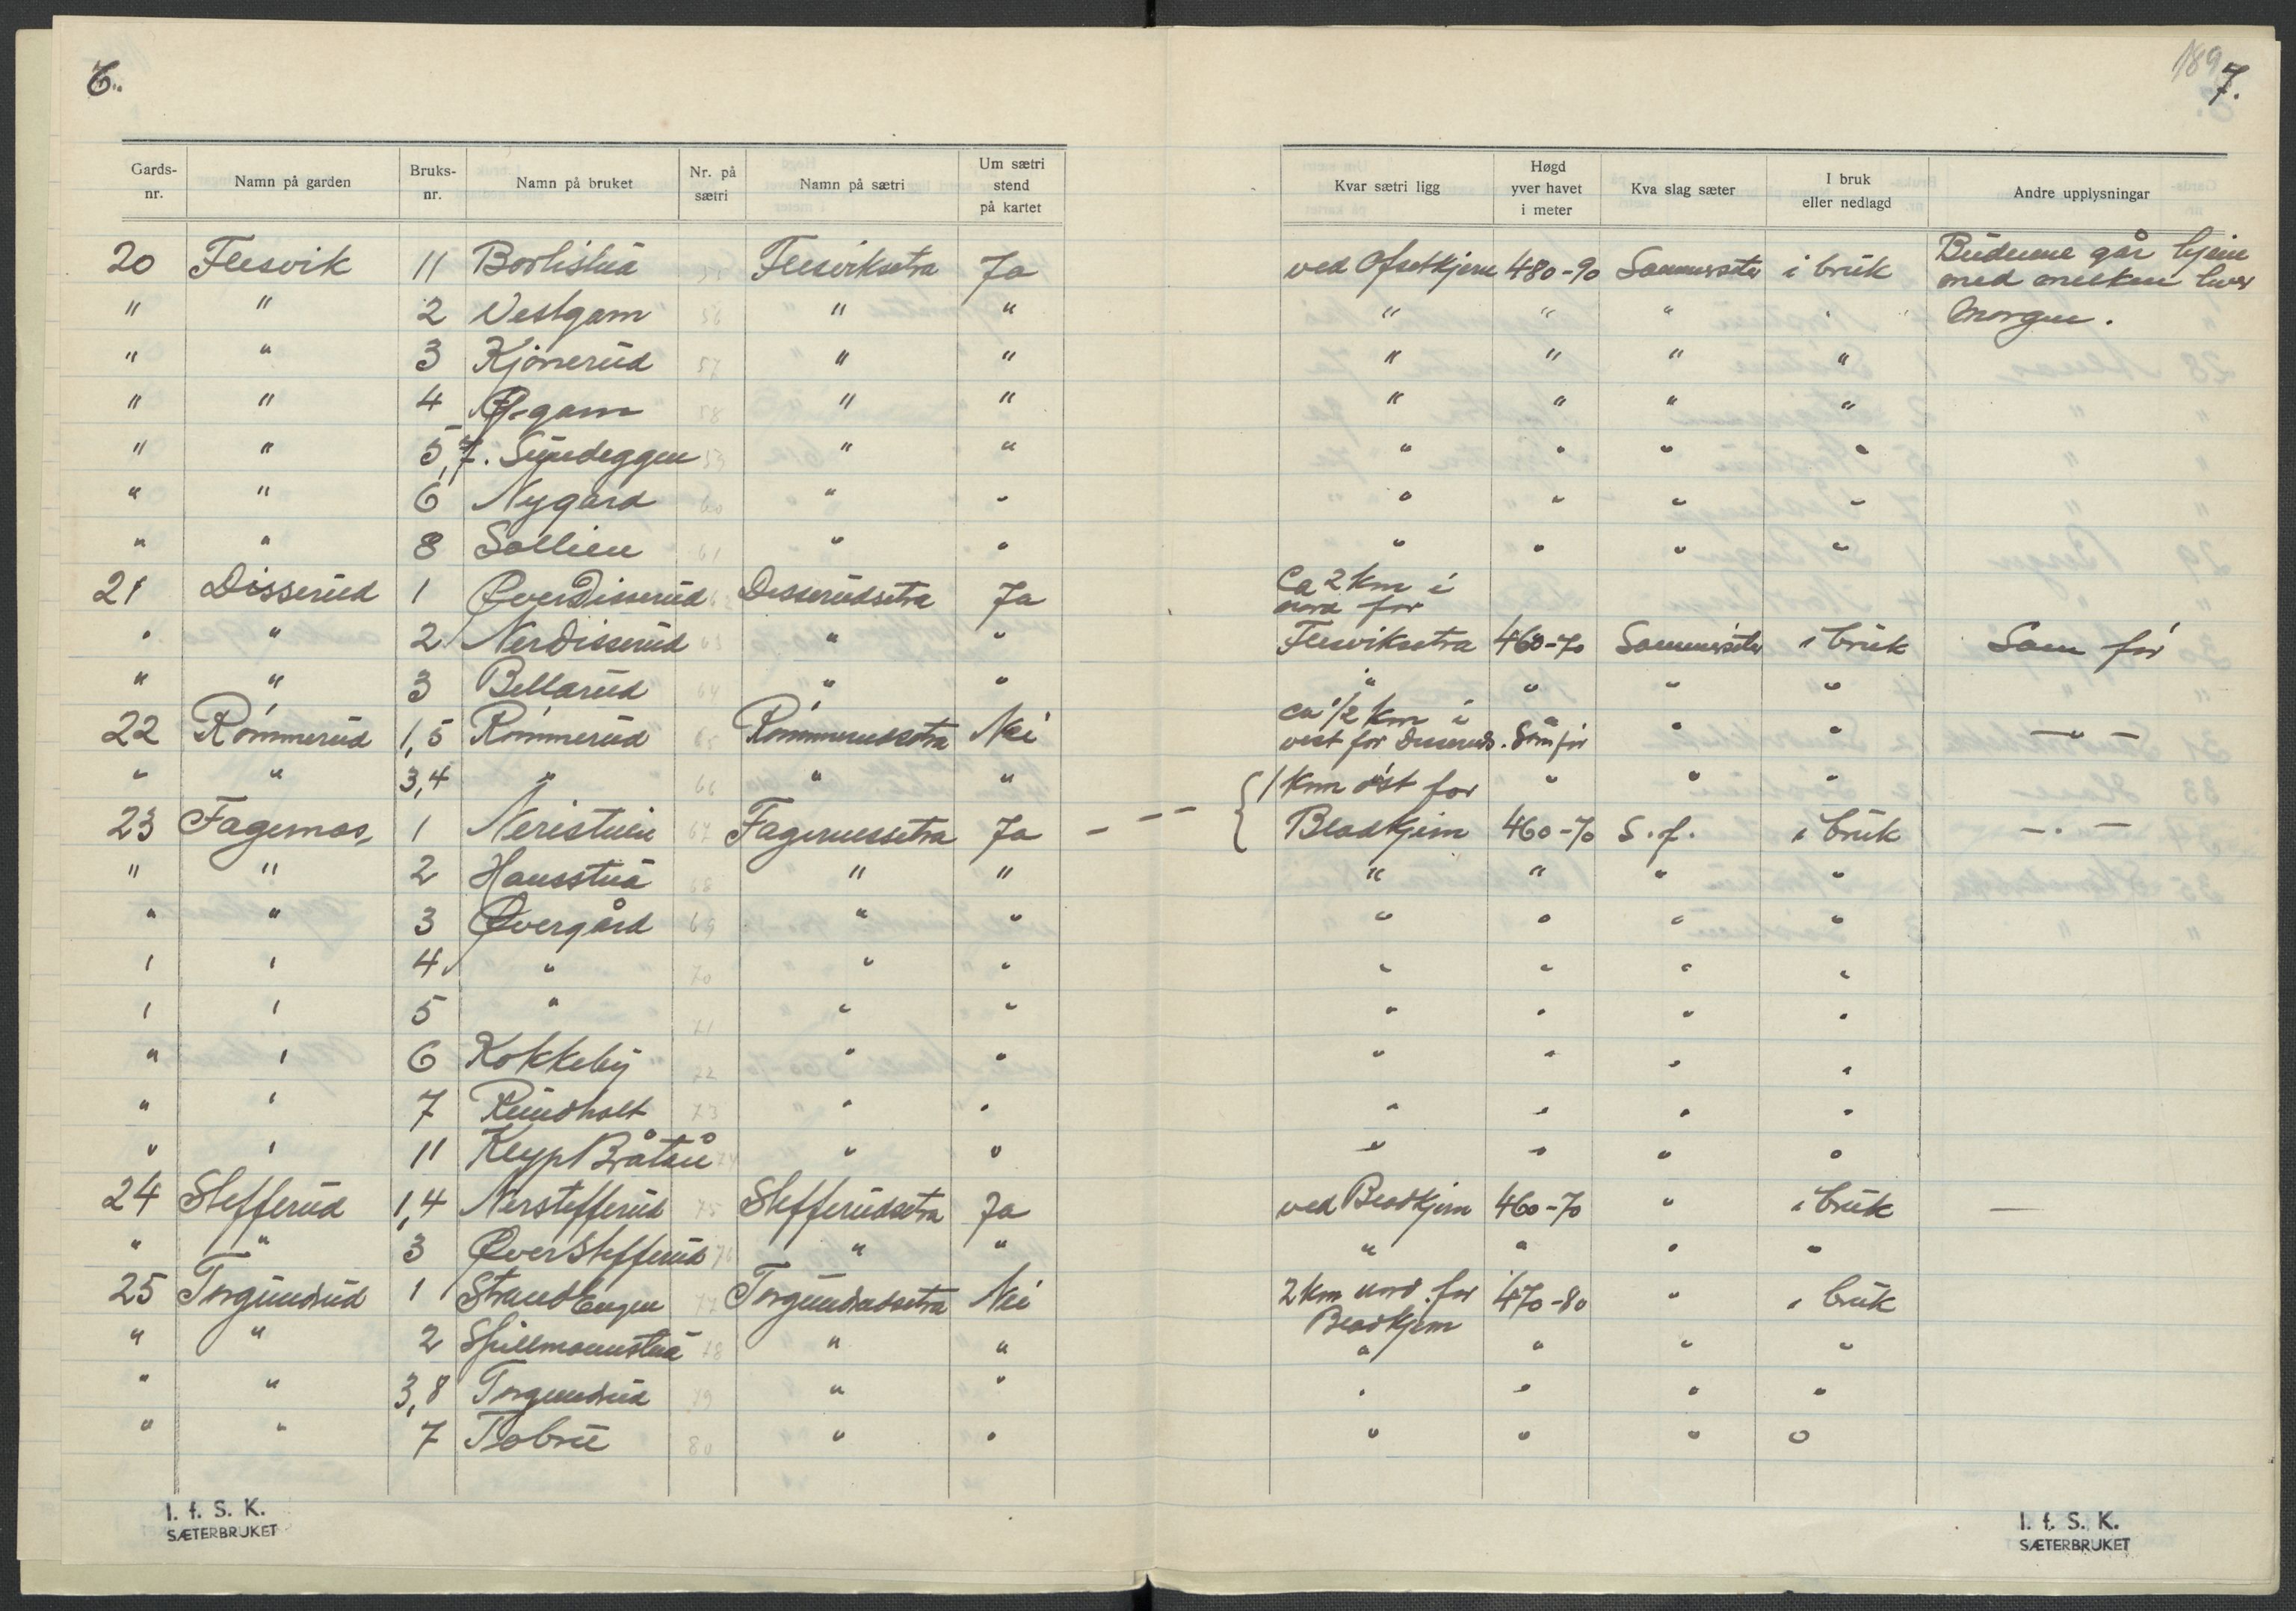 6.
Gards-nr. Namn på garden Bruks-nr. Namn på bruket Nr. på sætri Namn på sætri Um sætri stend på kartet
20 Flesvik 11 Borlistua Flesviksetra Ja
" " 2 Vestgam 56 " "
" " 3 Kjønerud 57 " "
" " 4 58 " "
" " 5,7. 59 " "
" " 6 Nygård 60 " "
" " 8 Sollien 61 " "
21 Disserud 1 ØverDisserud 62 Disserudsetra Ja
" " 2 NerDisserud 63 " "
" " 3 Bellarud 64 " "
22 Rømmerud 1,5 Rømmerud 65 Rømmerudsetra Nei
" " 3,4 " 66 " "
23 Fagernes, 1 Neristuen 67 Fagernessetra Ja
" " 2 Hansstua 68 " "
" " 3 Øvergård 69 " "
" " 4 " 70 " "
" " 5 " 71 " "
" " 6 Kokkeby 72 " "
" " 7 Rundholt 73 " "
" " 11 74 " "
24 Stefferud 1,4 Nerstefferud 75 Stefferudsetra Ja
" " 3 ØverStefferud 76 " "
25 Torgundrud 1 StrandEngen 77 Torgundrudsetra Nei
" " 2 Spillmannstua 78 " "
" " 3,8 Torgundrud 79 " "
" " 7 80 " "
I. f. S. K.
SÆTERBRUKET
189
7.
Kvar sætri ligg Høgd yver havet i meter Kva slag sæter I bruk eller nedlagd Andre upplysningar
ved 480-90 Sommerseter i bruk Budeiene går hjem
med melken hver
" " " " morgen.
" " " "
" " " "
" " " "
" " " "
" " " "
Ca 2 km i
nord for
Flesviksetra 460-70 Sommerseter i bruk Som før
" " " "
ca 1/2 km i
vest for Disseruds. Som før " " — " —
1 km øst for " " "
Bladkjern 460-70 S. f. i bruk — " —
" " " "
" " " "
" " " "
" " " "
" " " "
" " " "
" " " "
ved Bladkjern 460-70 " i bruk —
" " " "
2 km nord for 470-80 " i bruk
Bladkjern
" " " "
" " " "
" " " "
I. f. S. K.
SÆTERBRUKET